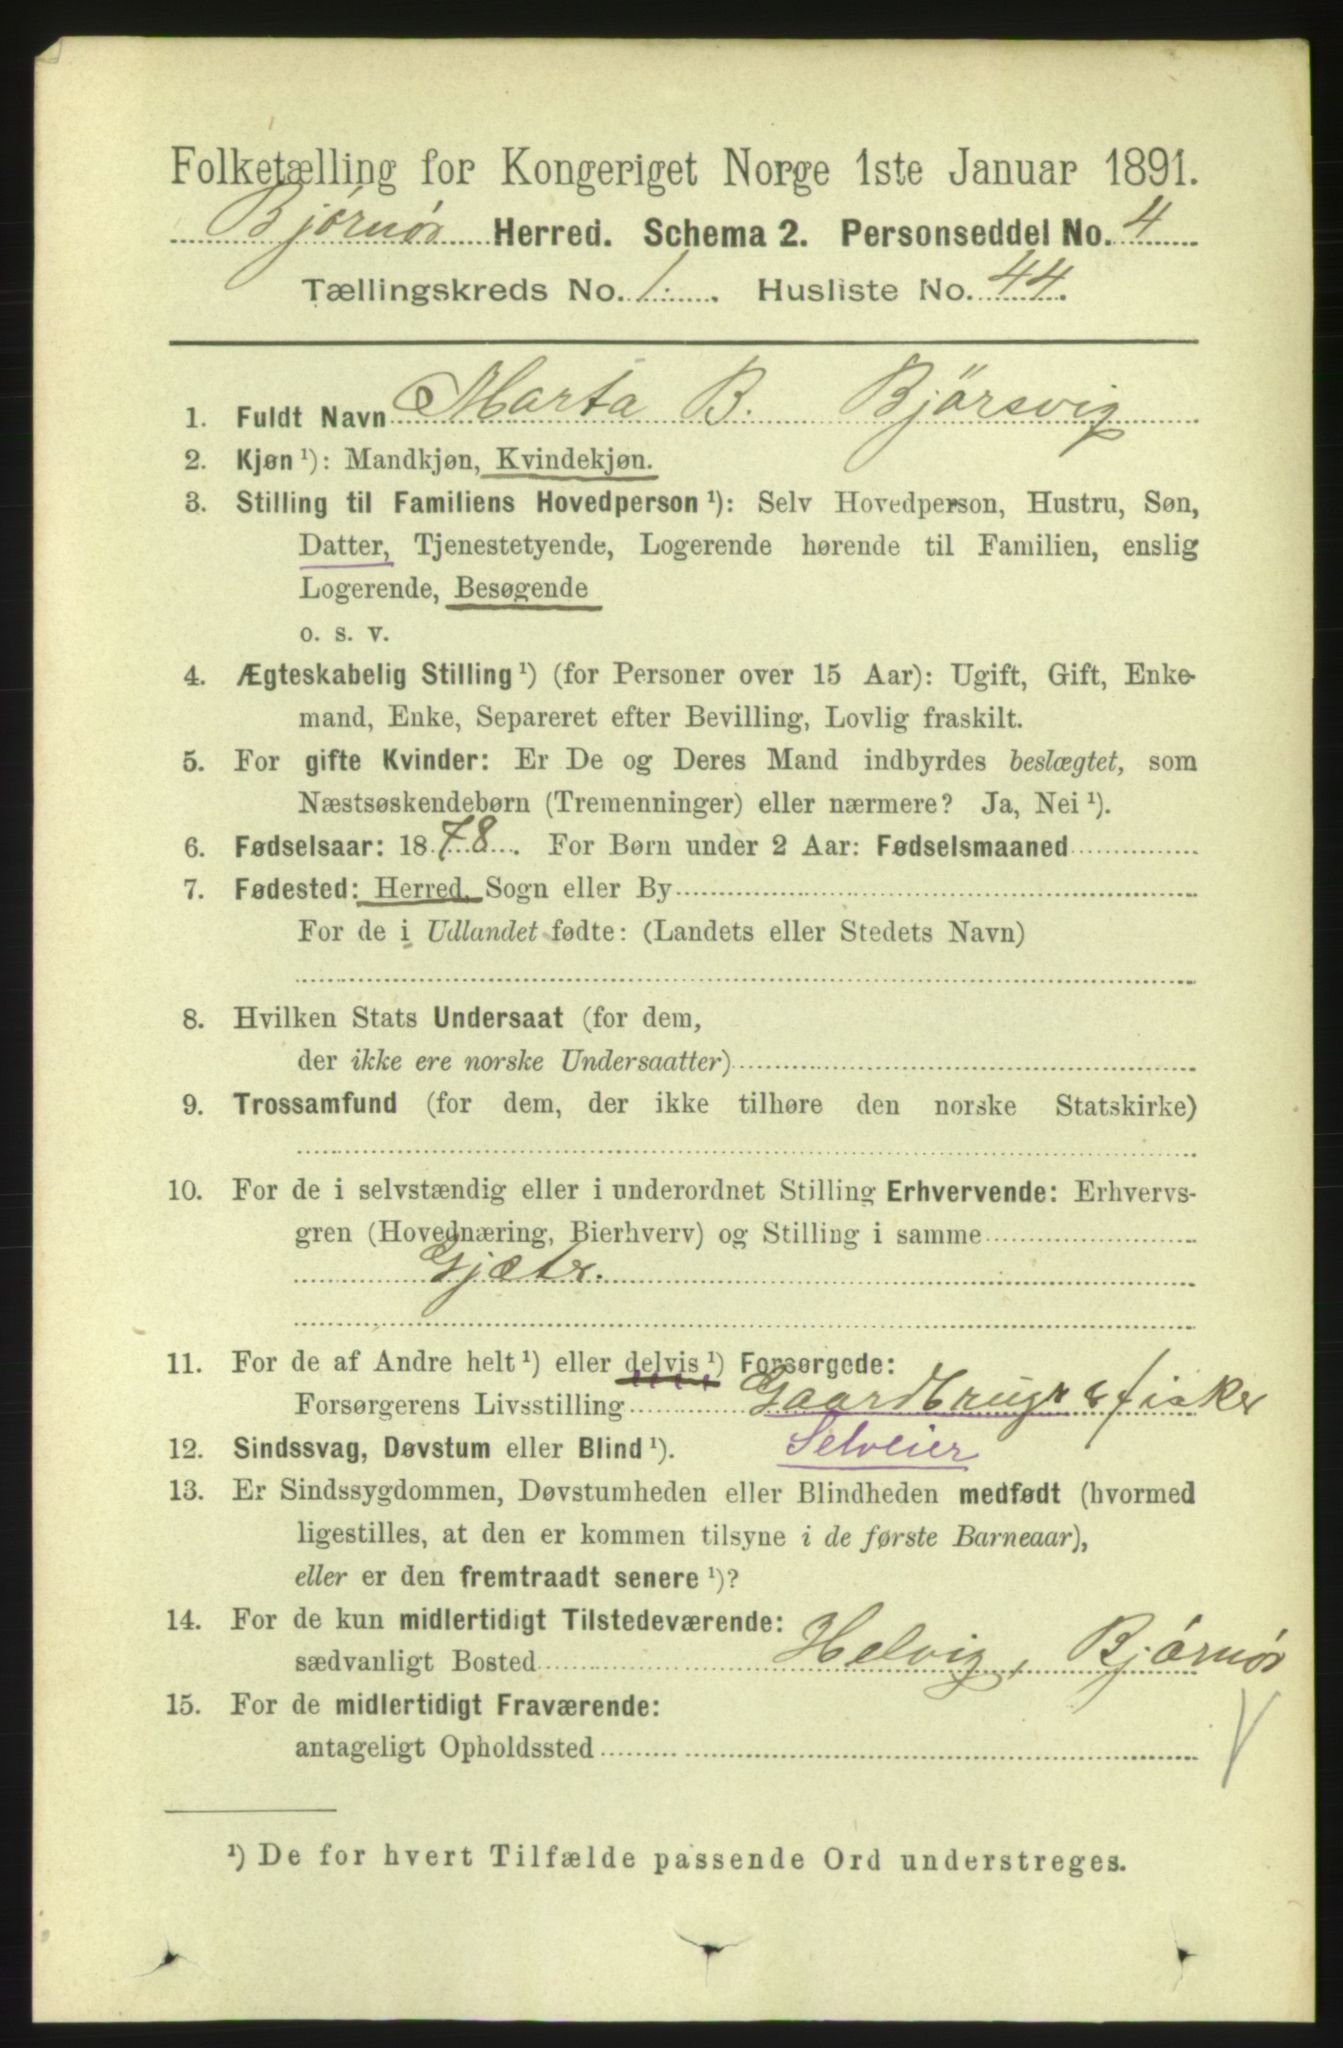 Folketælling for Kongeriget Norge 1ste Januar 1891.
Bjørnør Herred. Schema 2. Personseddel No. 4
Tællingskreds No. 1. Husliste No. 44.
1. Fuldt Navn Marta B. Bjørsvig
2. Kjøn ¹): Mandkjøn, Kvindekjøn.
3. Stilling til Familiens Hovedperson ¹): Selv Hovedperson, Hustru, Søn,
Datter, Tjenestetyende, Logerende hørende til Familien, enslig
Logerende, Besøgende
o. s. v.
4. Ægteskabelig Stilling ¹) (for Personer over 15 Aar): Ugift, Gift, Enke-
mand, Enke, Separeret efter Bevilling, Lovlig fraskilt.
5. For gifte Kvinder: Er De og Deres Mand indbyrdes beslægtet, som
Næstsøskendebørn (Tremenninger) eller nærmere? Ja, Nei ¹).
6. Fødselsaar: 1878. For Børn under 2 Aar: Fødselsmaaned
7. Fødested: Herred, Sogn eller By
For de i Udlandet fødte: (Landets eller Stedets Navn)
8. Hvilken Stats Undersaat (for dem,
der ikke ere norske Undersaatter)
9. Trossamfund (for dem, der ikke tilhøre den norske Statskirke)
10. For de i selvstændig eller i underordnet Stilling Erhvervende: Erhvervs-
gren (Hovednæring, Bierhverv) og Stilling i samme
Gjætr.
11. For de af Andre helt ¹) eller delvis ¹) Forsørgede:
Forsørgerens Livsstilling Gaardbrugr & fisker
12. Sindssvag, Døvstum eller Blind ¹). Selveier
13. Er Sindssygdommen, Døvstumheden eller Blindheden medfødt (hvormed
ligestilles, at den er kommen tilsyne i de første Barneaar),
eller er den fremtraadt senere ¹)?
14. For de kun midlertidigt Tilstedeværende:
sædvanligt Bosted Helvig, Bjørnør
15. For de midlertidigt Fraværende:
antageligt Opholdssted
¹) De for hvert Tilfælde passende Ord understreges.